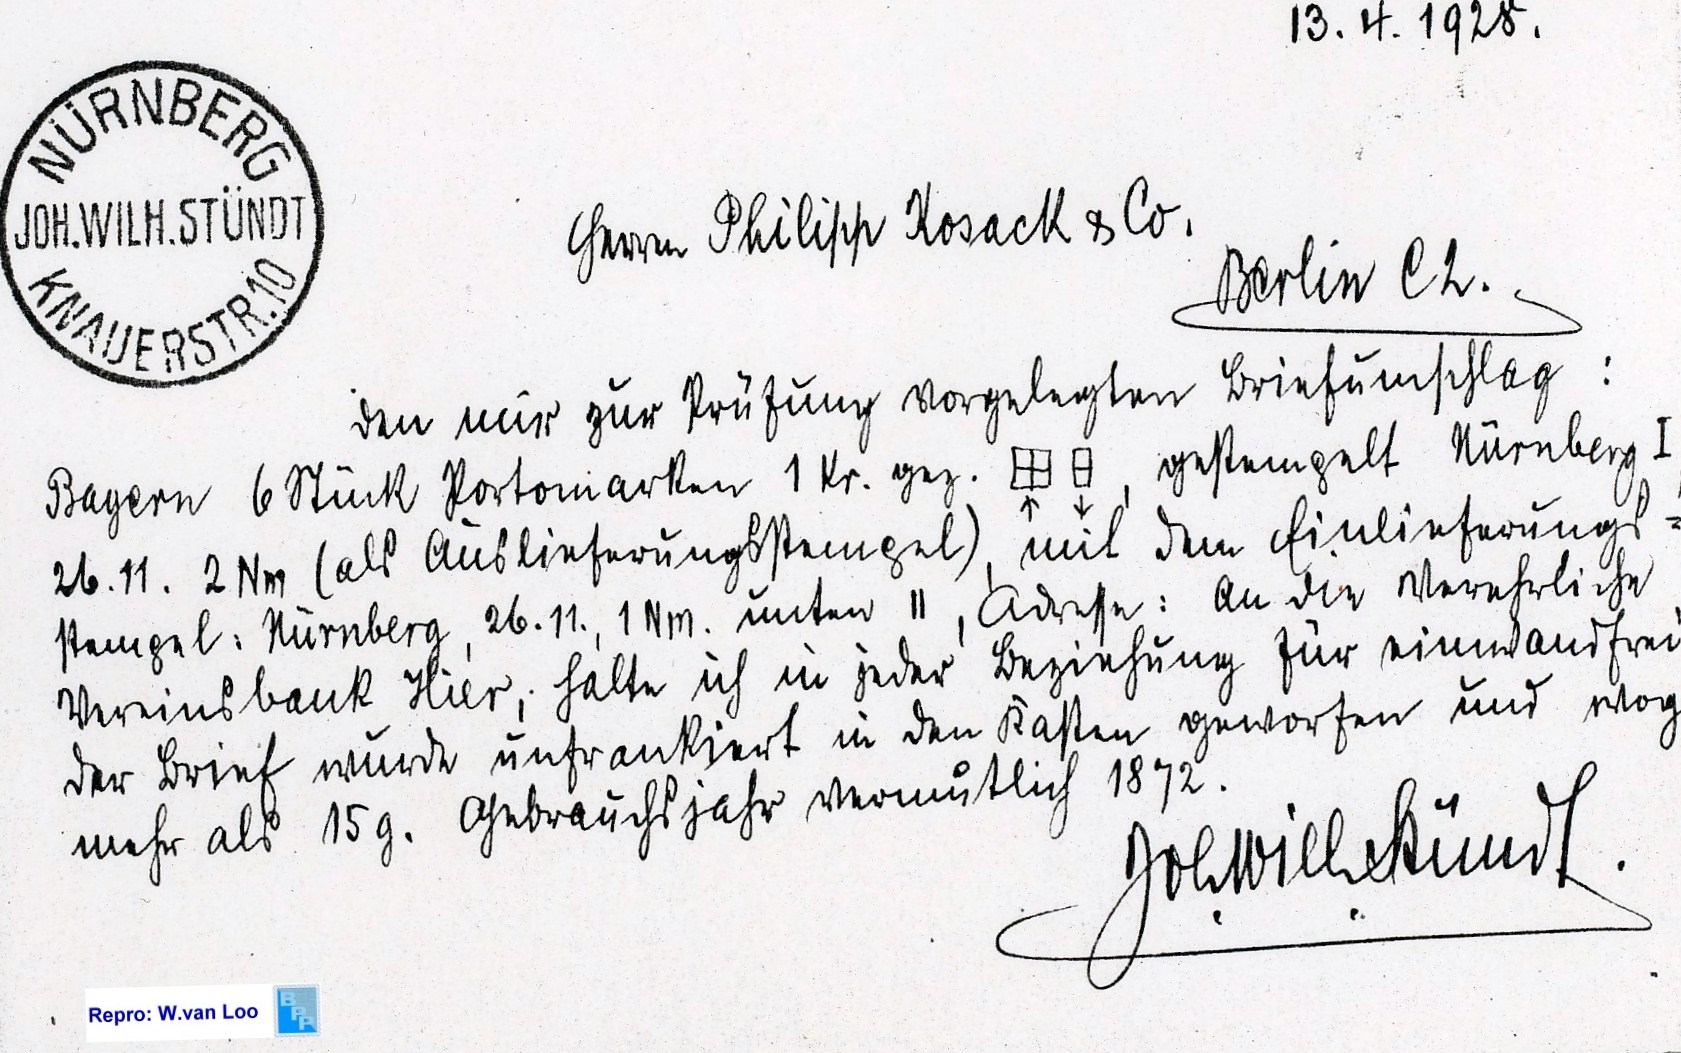 13. 4. 1928.
NÜRNBERG
JOH. WILH. STÜNDT
KNAUERSTR. 10
Herrn Philipp Kosack & Co.
Berlin C 2.
Den mir zur Prüfung vorgelegten Briefumschlag :
Bayern 6 Stück Portomarken 1 Kr. gez. , gestempelt Nürnberg I,
26.11. 2 Nm (als Auslieferungsstempel), mit dem Einlieferungs=
stempel: Nürnberg, 26.11., 1 Nm. unten II, Adresse: An die Verehrliche
Vereinsbank Hier, halte ich in jeder Beziehung für einwandfrei
der Brief wurde unfrankiert in den Kasten geworfen und wog
mehr als 15 g. Gebrauchsjahr vermutlich 1872.
Joh. Wilh. Stündt.
Repro: W.van Loo
BPP